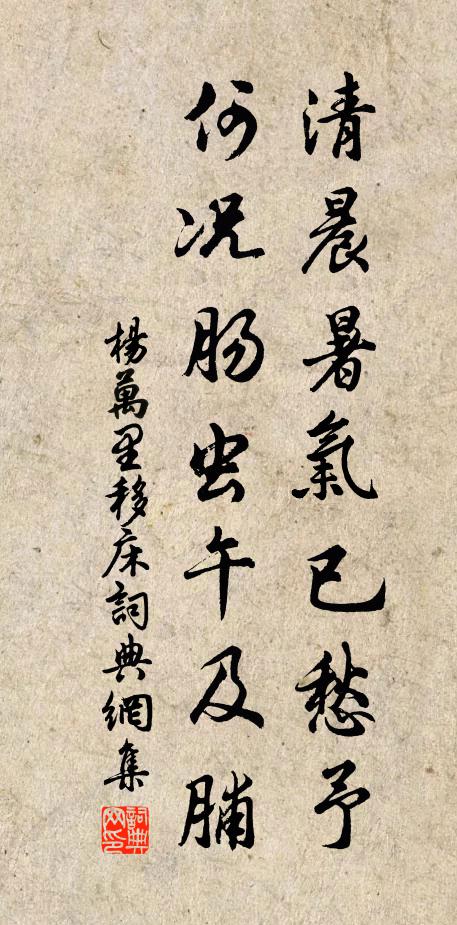 清晨暑氣已愁予
何况腸虫午及脯
楊萬里移床詞典網集
詞典网印